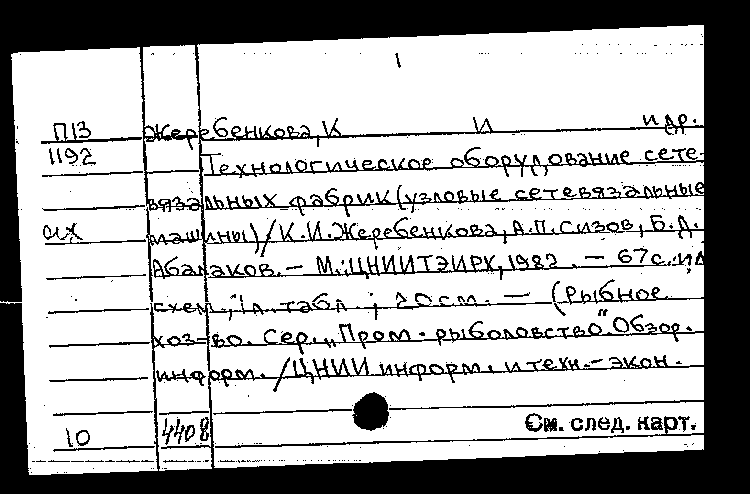 1
П13 Жеребенкова, К И и др.
1192 Технологическое оборудование сете-
вязальных фабрик (узловые сетевязальные
машины) / К.И. Жеребенкова, А.П. Сизов, Б.Д.
Абалаков. – М.: ЦНИИТЭИРХ, 1982. – 67 с.: ил
схем., 1 л. табл.; 20 см. – (Рыбное
хоз-во. Сер. „Пром. рыболовство". Обзор.
информ. / ЦНИИ информ. и техн.-экон.
10 4408 См. след. карт.